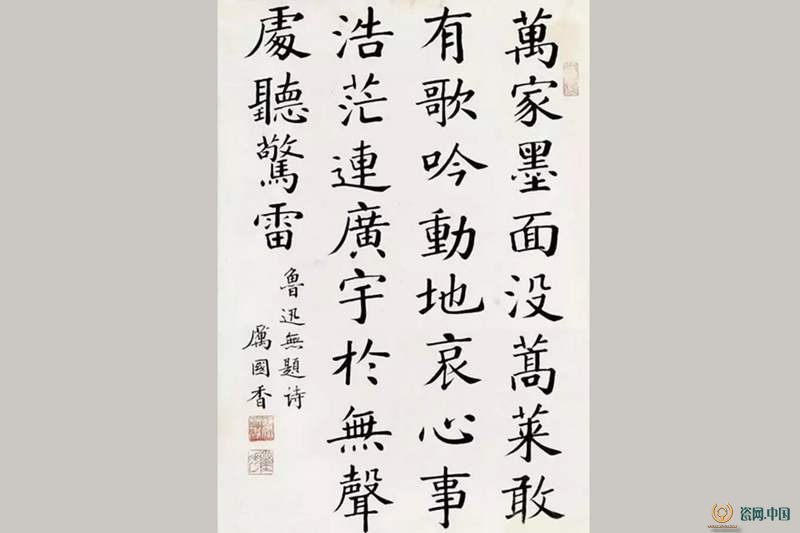 萬家墨面没蒿萊敢
有歌吟動地哀心事
浩茫連廣宇於無聲
處聽驚雷
鲁迅無題诗
厲國香
瓷网.中国